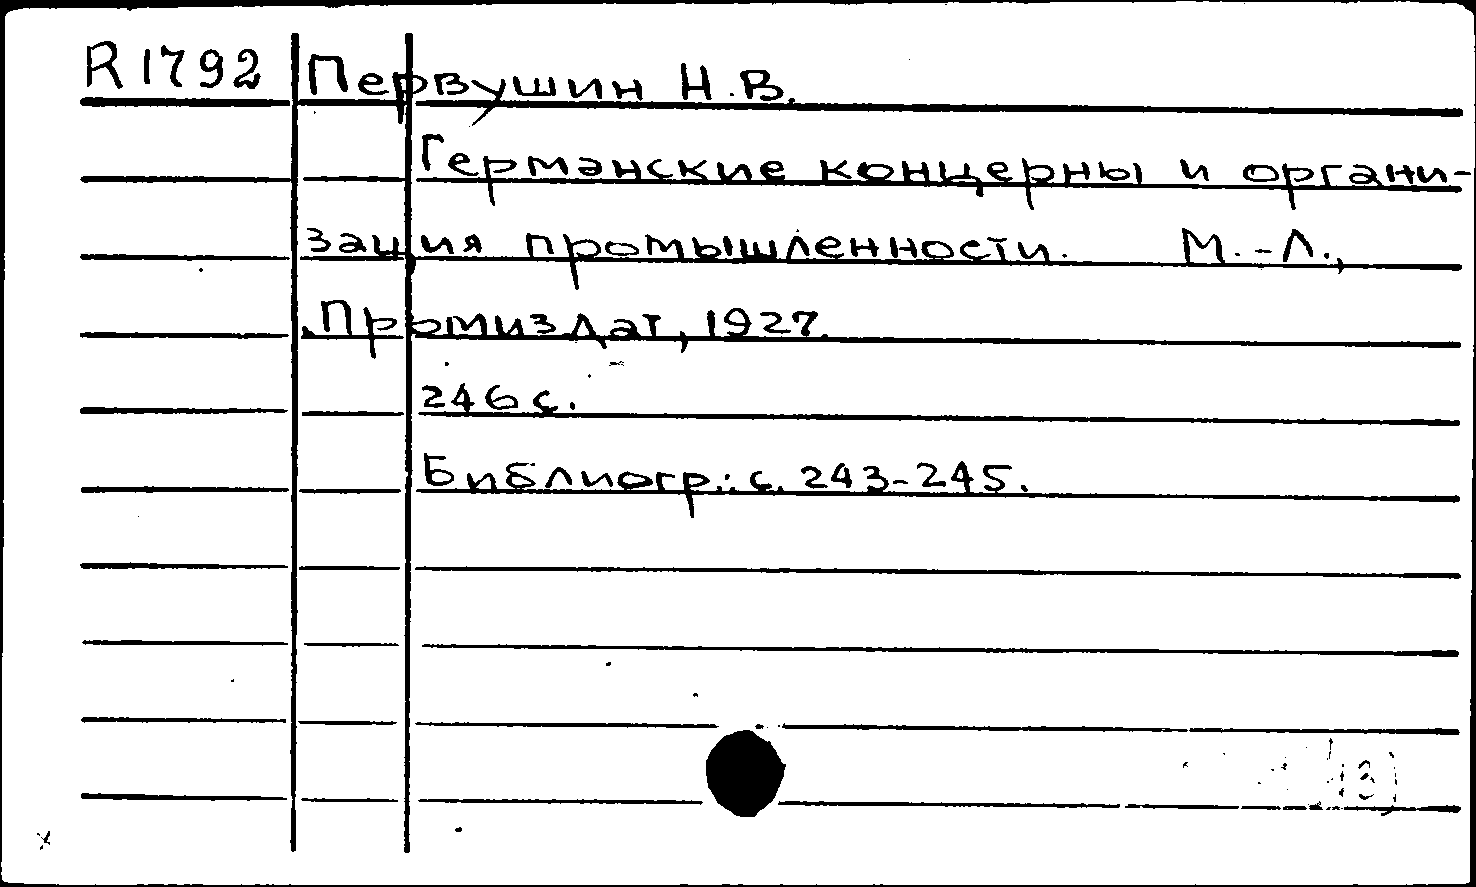 R1792 Первушин Н.В.
Германские концерны и органи-
зация промышленности. М.-Л.,
Промиздат, 1927.
246 с.
Библиогр.: с. 243-245.